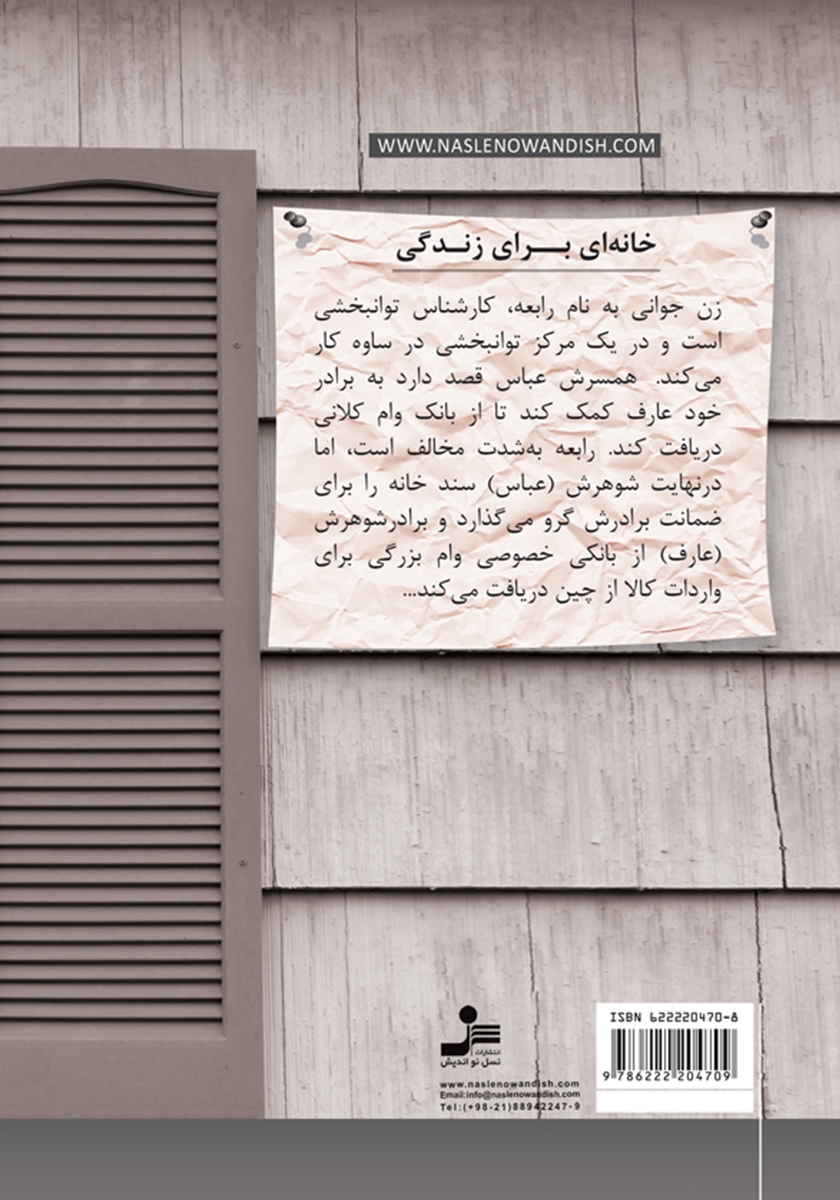 WWW.NASLENOWANDISH.COM
خانه‌ای بـــرای زنـدگی
زن جوانی به نام رابعه، کارشناس توانبخشی
است و در یک مرکز توانبخشی در ساوه کار
می‌کند. همسرش عباس قصد دارد به برادر
خود عارف کمک کند تا از بانک وام کلانی
دریافت کند. رابعه به‌شدت مخالف است، اما
درنهایت شوهرش (عباس) سند خانه را برای
ضمانت برادرش گرو می‌گذارد و برادرشوهرش
(عارف) از بانکی خصوصی وام بزرگی برای
واردات کالا از چین دریافت می‌کند...
انتشارات
نسل نو اندیش
www.naslenowandish.com
Email:info@naslenowandish.com
Tel:(+98-21)88942247-9
ISBN 622220470-8
9 786222 204709